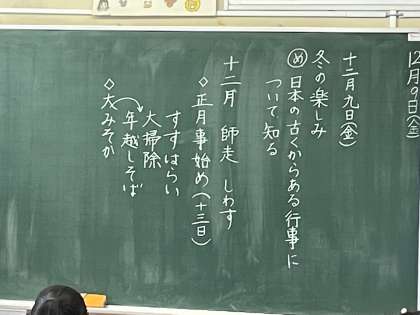 12月9日(金)
十二月九日(金)
冬の楽しみ
め 日本の古くからある行事に
ついて知る
十二月 師走 しわす
◇正月事始め(十三日)
すすはらい
大掃除
年越しそば
◇大みそか